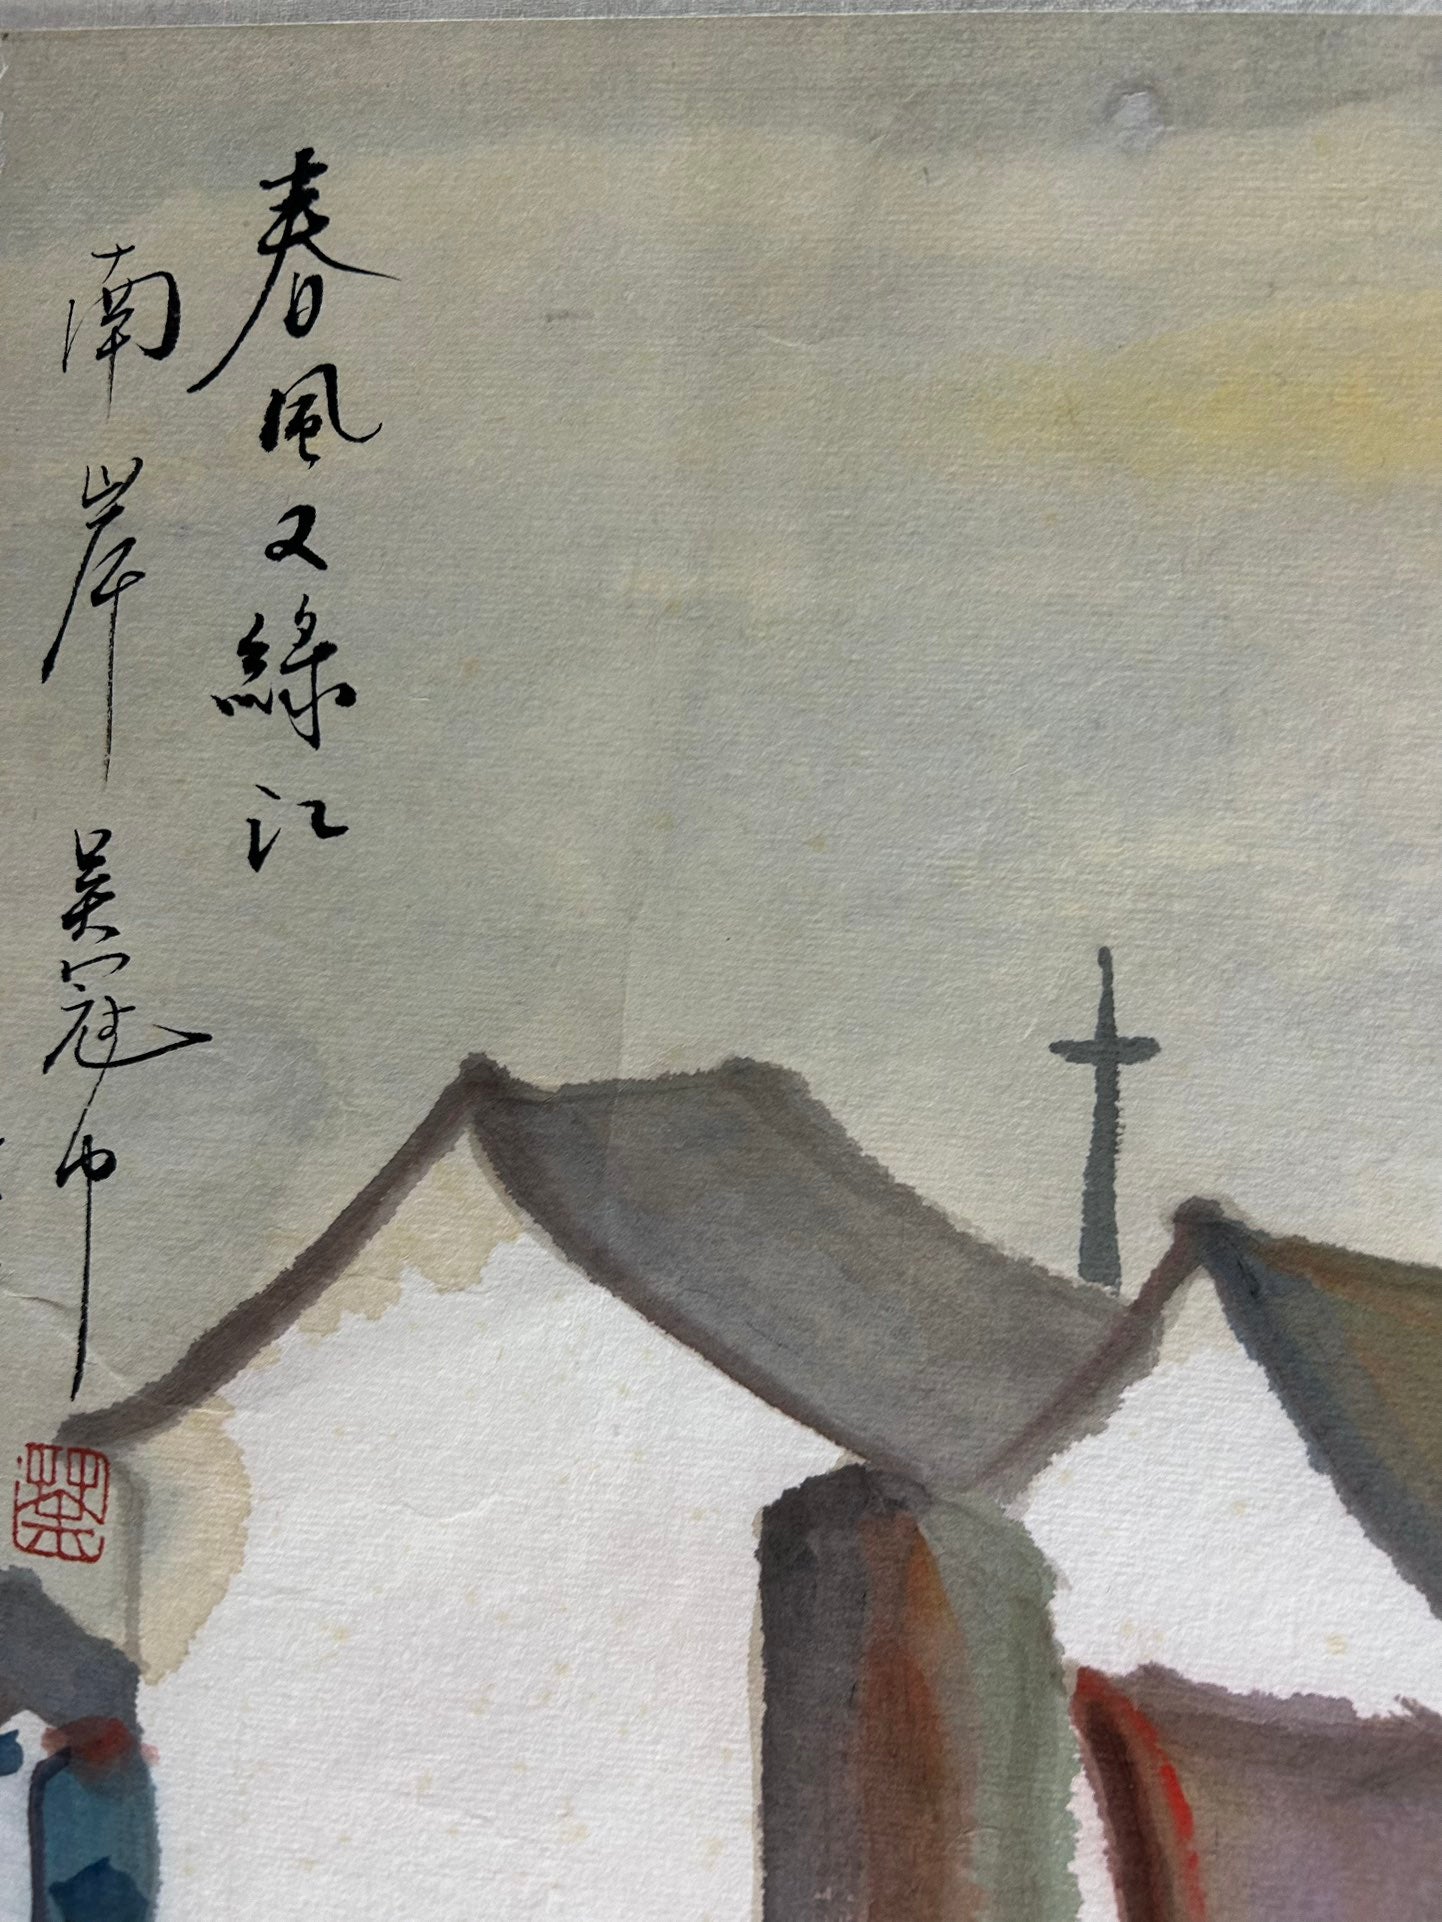 春風又綠江
南岸 吳冠中
荼